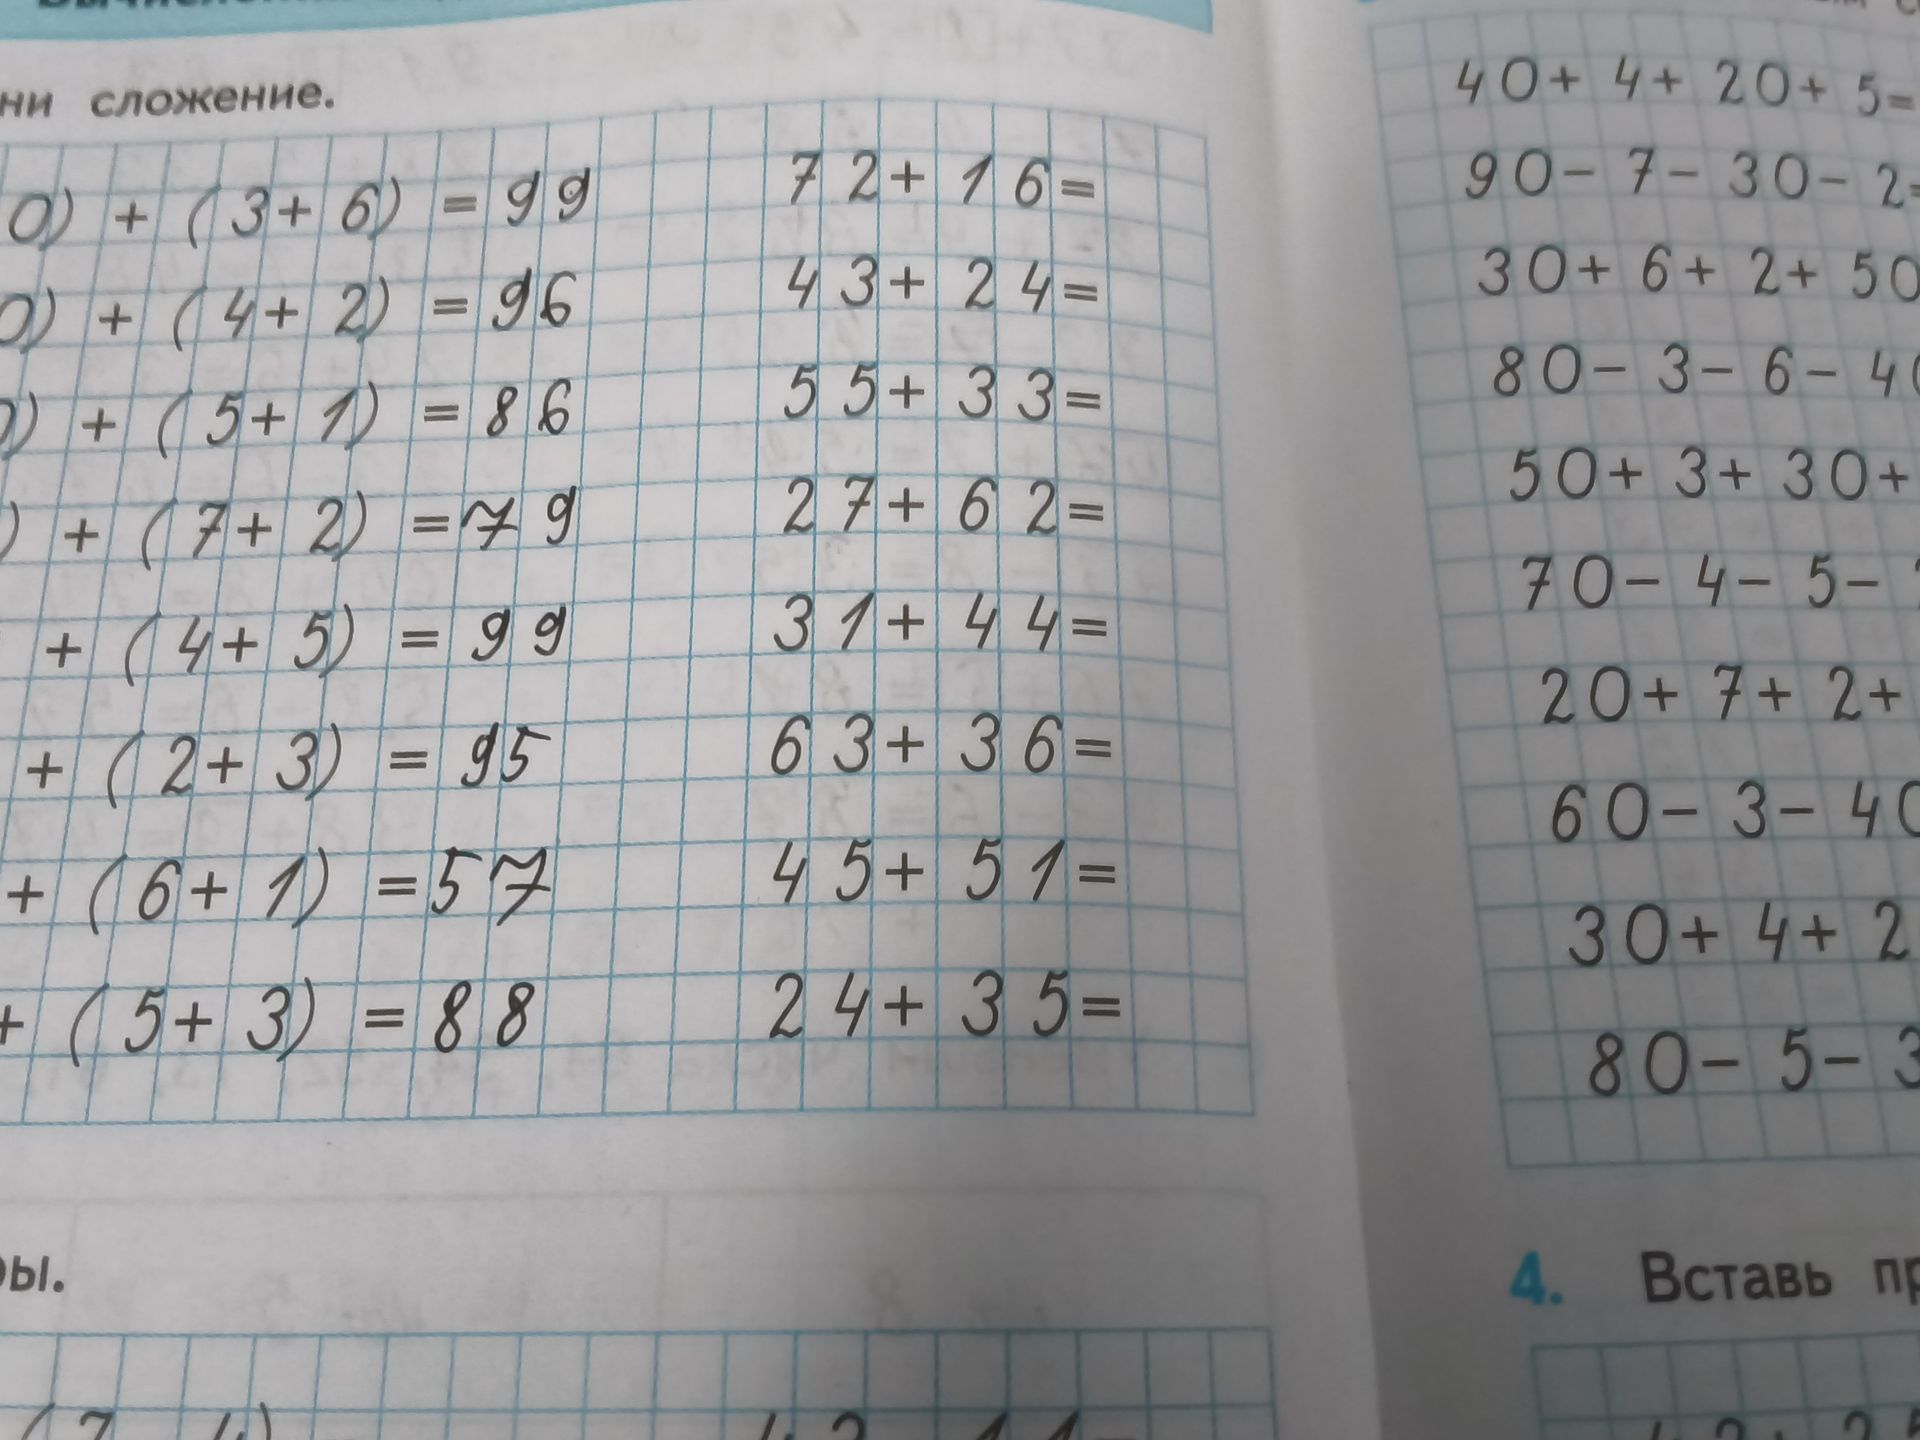 сложение.
0) + (3+ 6) = 99
0) + (4+ 2) = 96
) + (5+ 1) = 86
) + (7+ 2) = 79
+ (4+ 5) = 99
+ (2+ 3) = 95
+ (6+ 1) = 57
+ (5+ 3) = 88
72+ 16=
43+ 24=
55+ 33=
27+ 62=
31+ 44=
63+ 36=
45+ 51=
24+ 35=
40+ 4+ 20+ 5=
90- 7- 30- 2=
30+ 6+ 2+ 50
80- 3- 6- 40
50+ 3+ 30+
70- 4- 5-
20+ 7+ 2+
60- 3- 40
30+ 4+ 2
80- 5- 3
4. Вставь